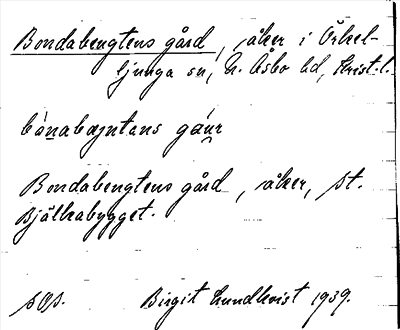 Bondabengtens gård, åker i Örkel-
ljunga sn, N. Åsbo hd, Krist. l.
bónabæŋtans gáur
Bondabengtens gård, åker, St.
Bjälkabygget.
sos. Birgit Lundkvist 1939.